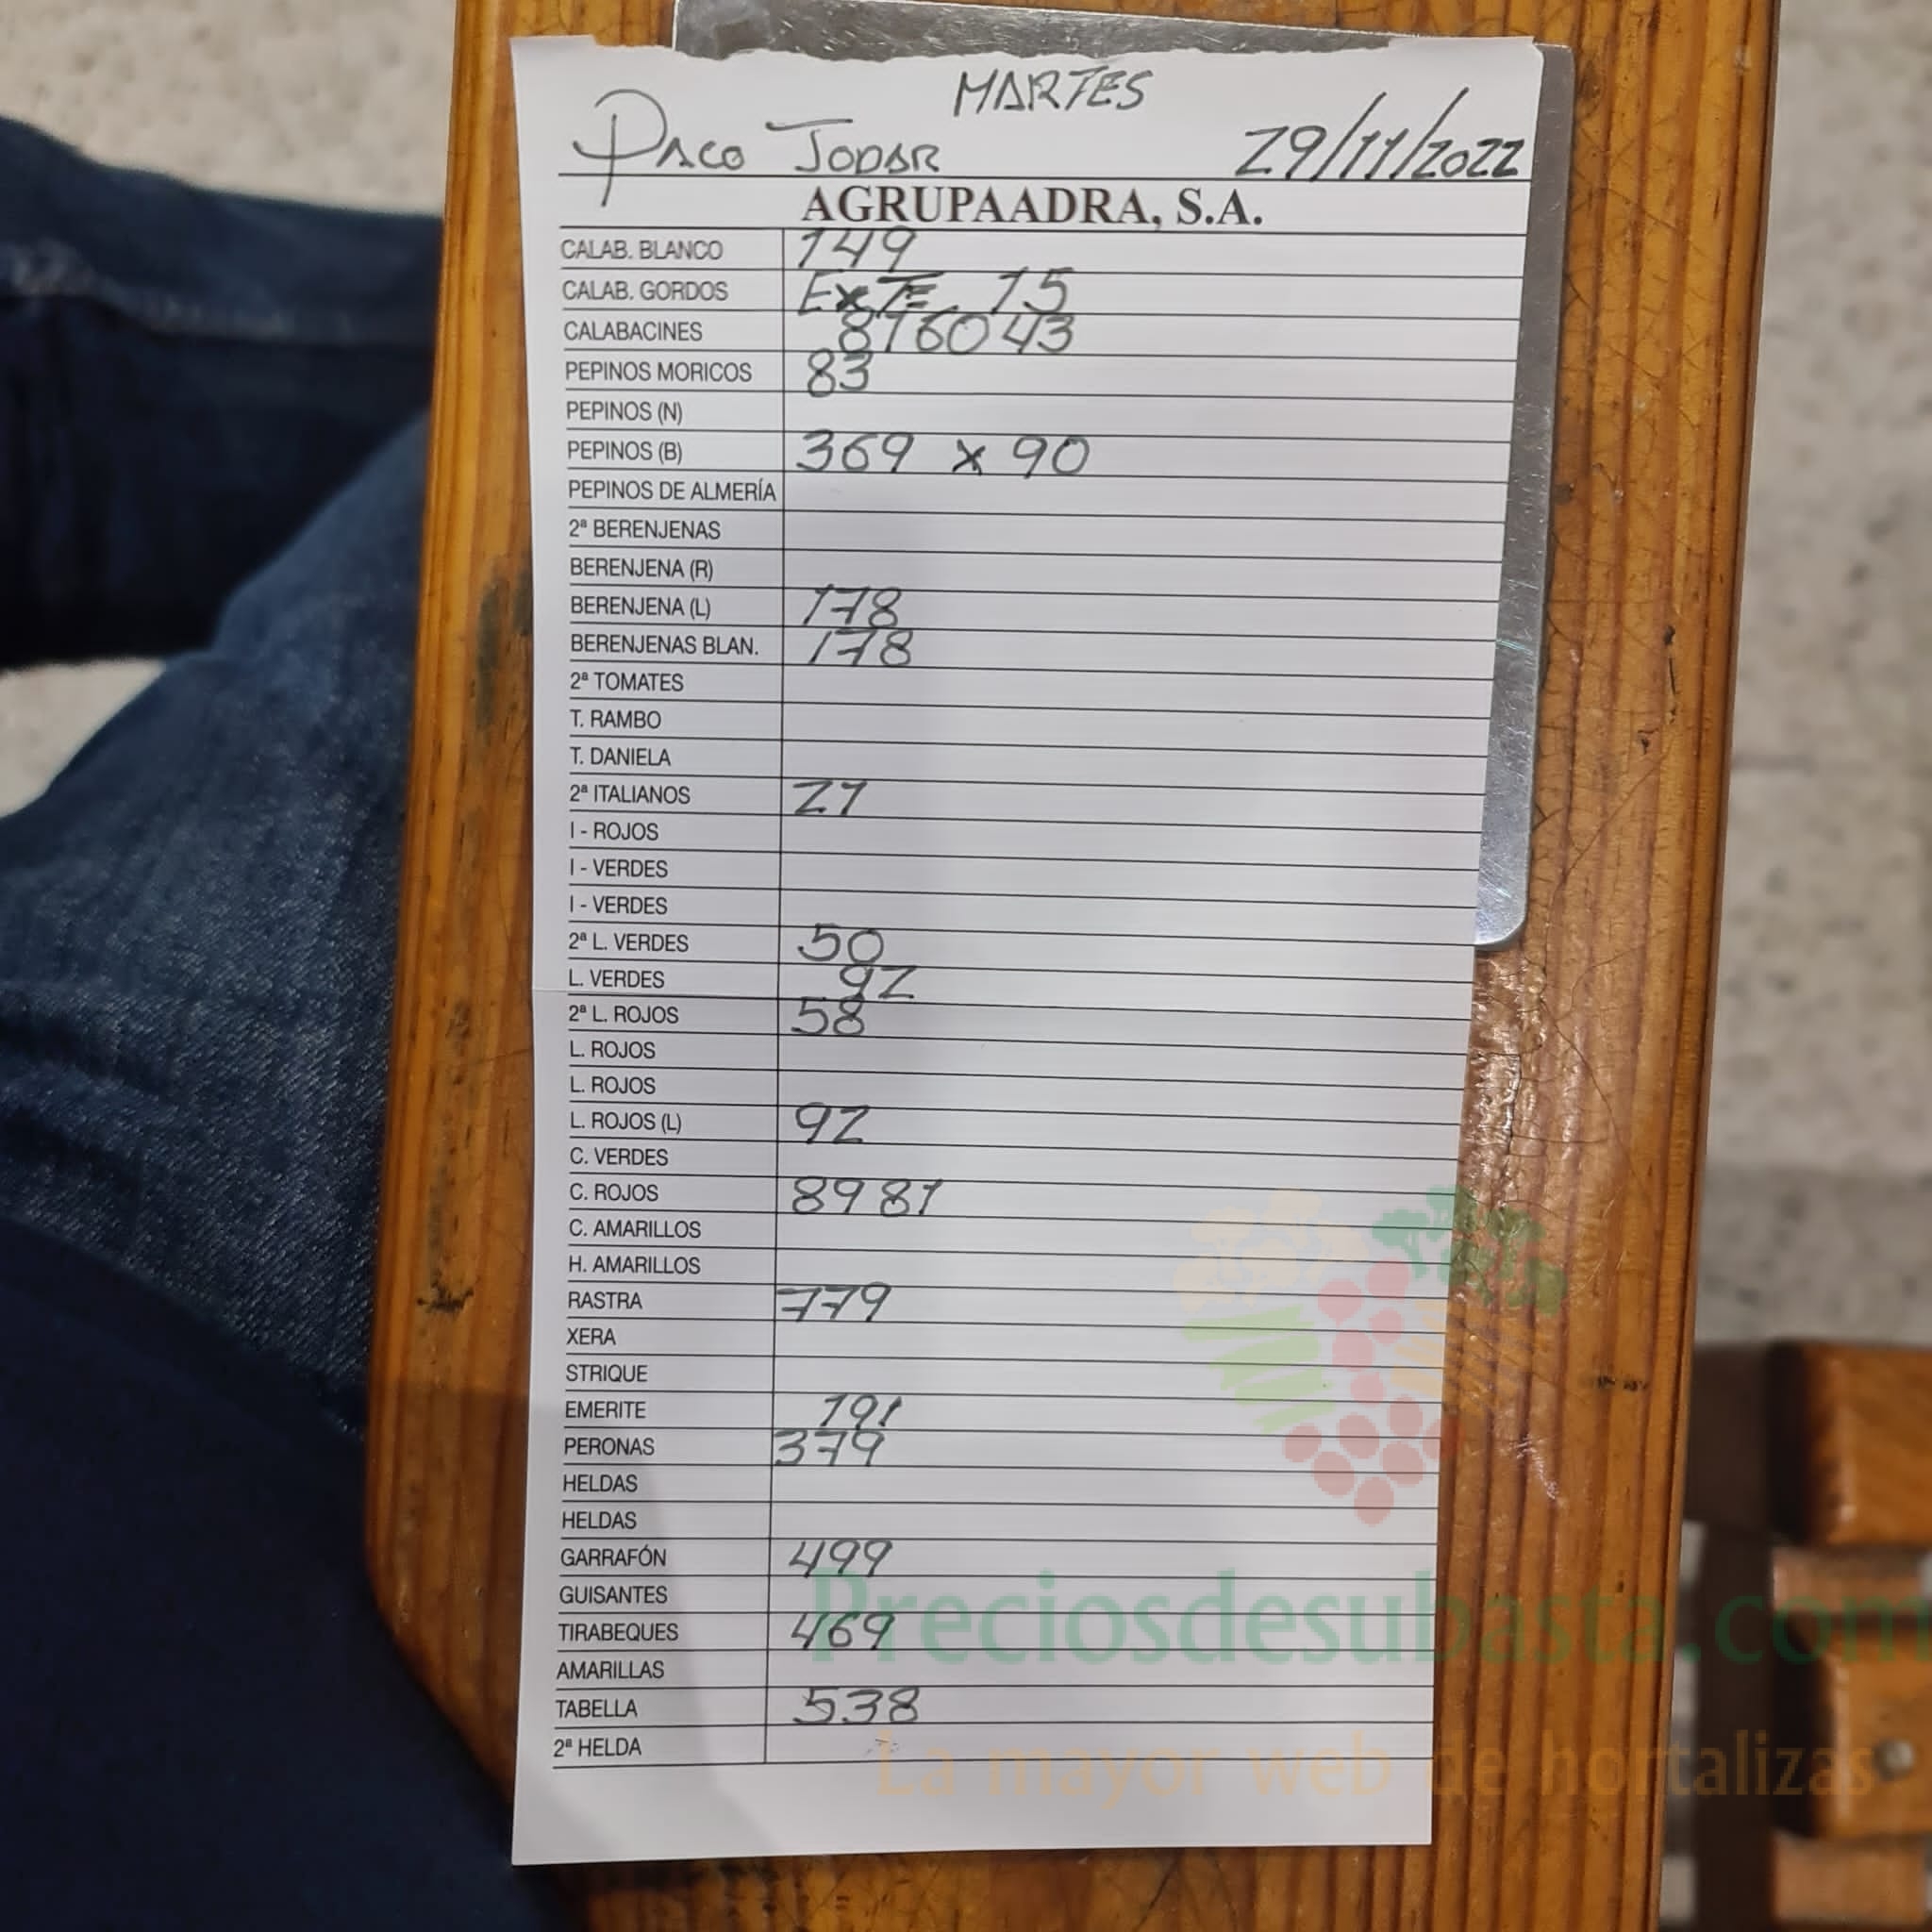 MARTES
PACO JODAR 29/11/2022
AGRUPAADRA, S.A.
CALAB. BLANCO 149
CALAB. GORDOS EXTE. 15
CALABACINES 816043
PEPINOS MORICOS 83
PEPINOS (N)
PEPINOS (B) 369 x 90
PEPINOS DE ALMERÍA
2ª BERENJENAS
BERENJENA (R)
BERENJENA (L) 178
BERENJENAS BLAN. 178
2ª TOMATES
T. RAMBO
T. DANIELA
2ª ITALIANOS 21
I - ROJOS
I - VERDES
I - VERDES
2ª L. VERDES 50
L. VERDES 92
2ª L. ROJOS 58
L. ROJOS
L. ROJOS
L. ROJOS (L) 92
C. VERDES
C. ROJOS 89 81
C. AMARILLOS
H. AMARILLOS
RASTRA 779
XERA
STRIQUE
EMERITE 191
PERONAS 379
HELDAS
HELDAS
GARRAFÓN 499
GUISANTES
TIRABEQUES 469
AMARILLAS
TABELLA 538
2ª HELDA
Preciosdesubasta.com
La mayor web de hortalizas